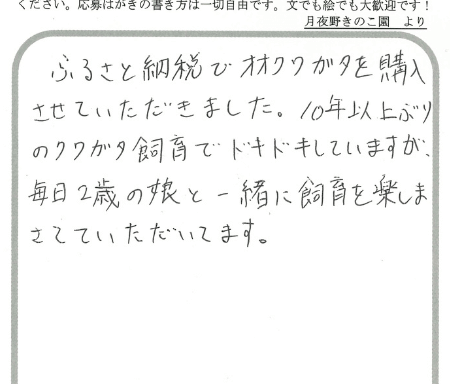 ください。応募はがきの書き方は一切自由です。文でも絵でも大歓迎です！
月夜野きのこ園　より
ふるさと納税でオオクワガタを購入
させていただきました。10年以上ぶり
のクワガタ飼育でドキドキしていますが、
毎日2歳の娘と一緒に飼育を楽しま
さてていただいてます。